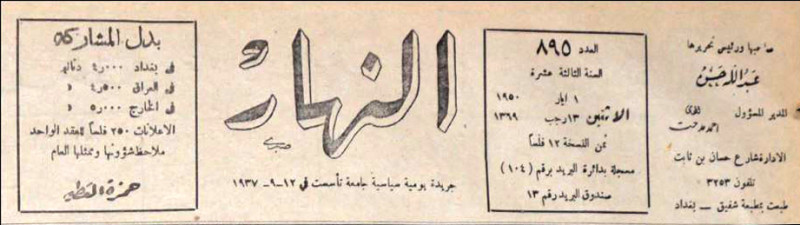 صاحبها ورئيس تحريرها
عبدالله حسن
المدير المسؤول
الادارة شارع حسان بن ثابت
تلفون ٣٢٥٣
طبعت بمطبعة شفيق — بغداد
العدد ٨٩٥
السنة الثالثة عشرة
١ ايار ١٩٥٠
الاثنين ١٣ رجب ١٣٦٩
ثمن النسخة ١٢ فلساً
مسجلة بدائرة البريد برقم (١٠٤)
صندوق البريد رقم ١٣
النهار
صبري
جريدة يومية سياسية جامعة تأسست في ١٢-٩-١٩٣٧
بدل المشاركة
في بغداد ٤٫٠٠٠ دنانير
في العراق ٤٫٥٠٠ »
في الخارج ٥٫٠٠٠ »
الاعلانات ٢٥٠ فلساً للعقد الواحد
ملاحظ شؤونها وممثلها العام
حمزة